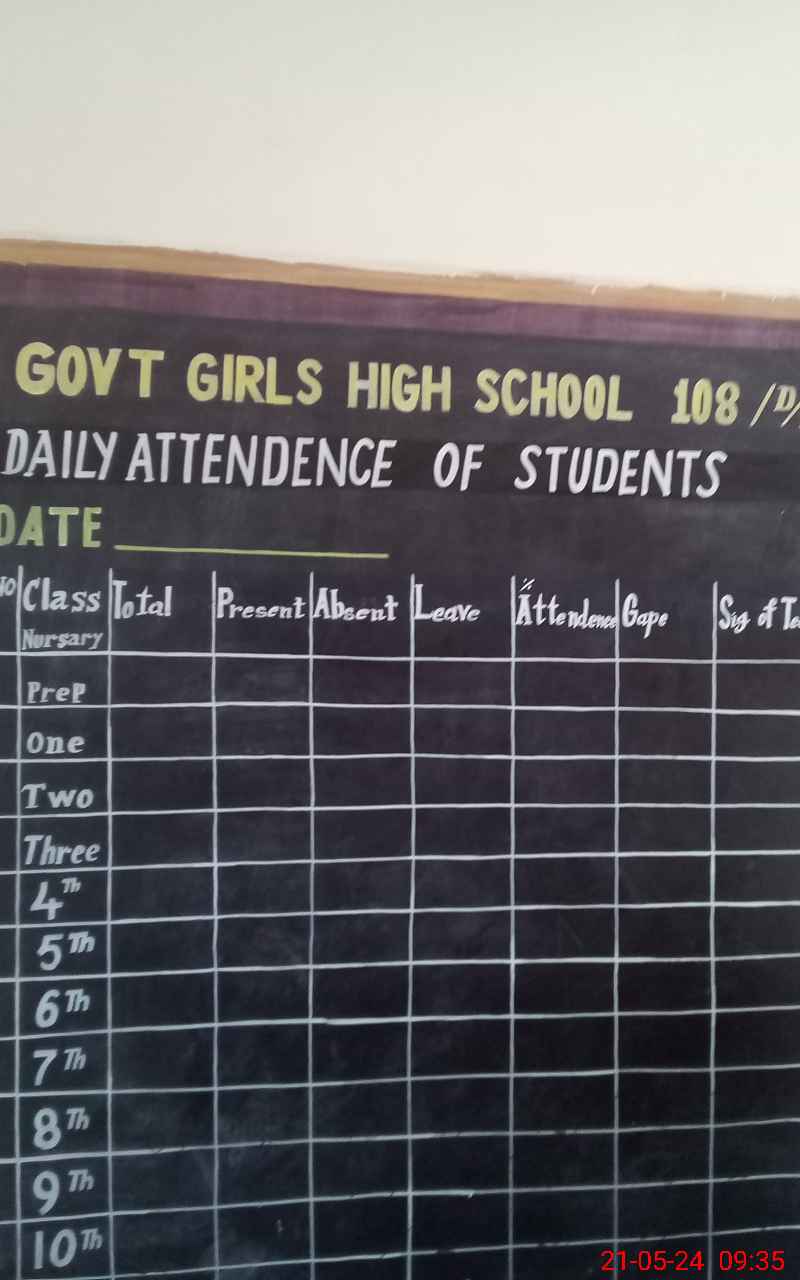 GOVT GIRLS HIGH SCHOOL 108 /D/
DAILY ATTENDENCE OF STUDENTS
DATE
Class Total Present Absent Leave % Attendence Gape Sig of
Nursary
PreP
One
Two
Three
4Th
5Th
6Th
7Th
8Th
9Th
10Th
21-05-24 09:35